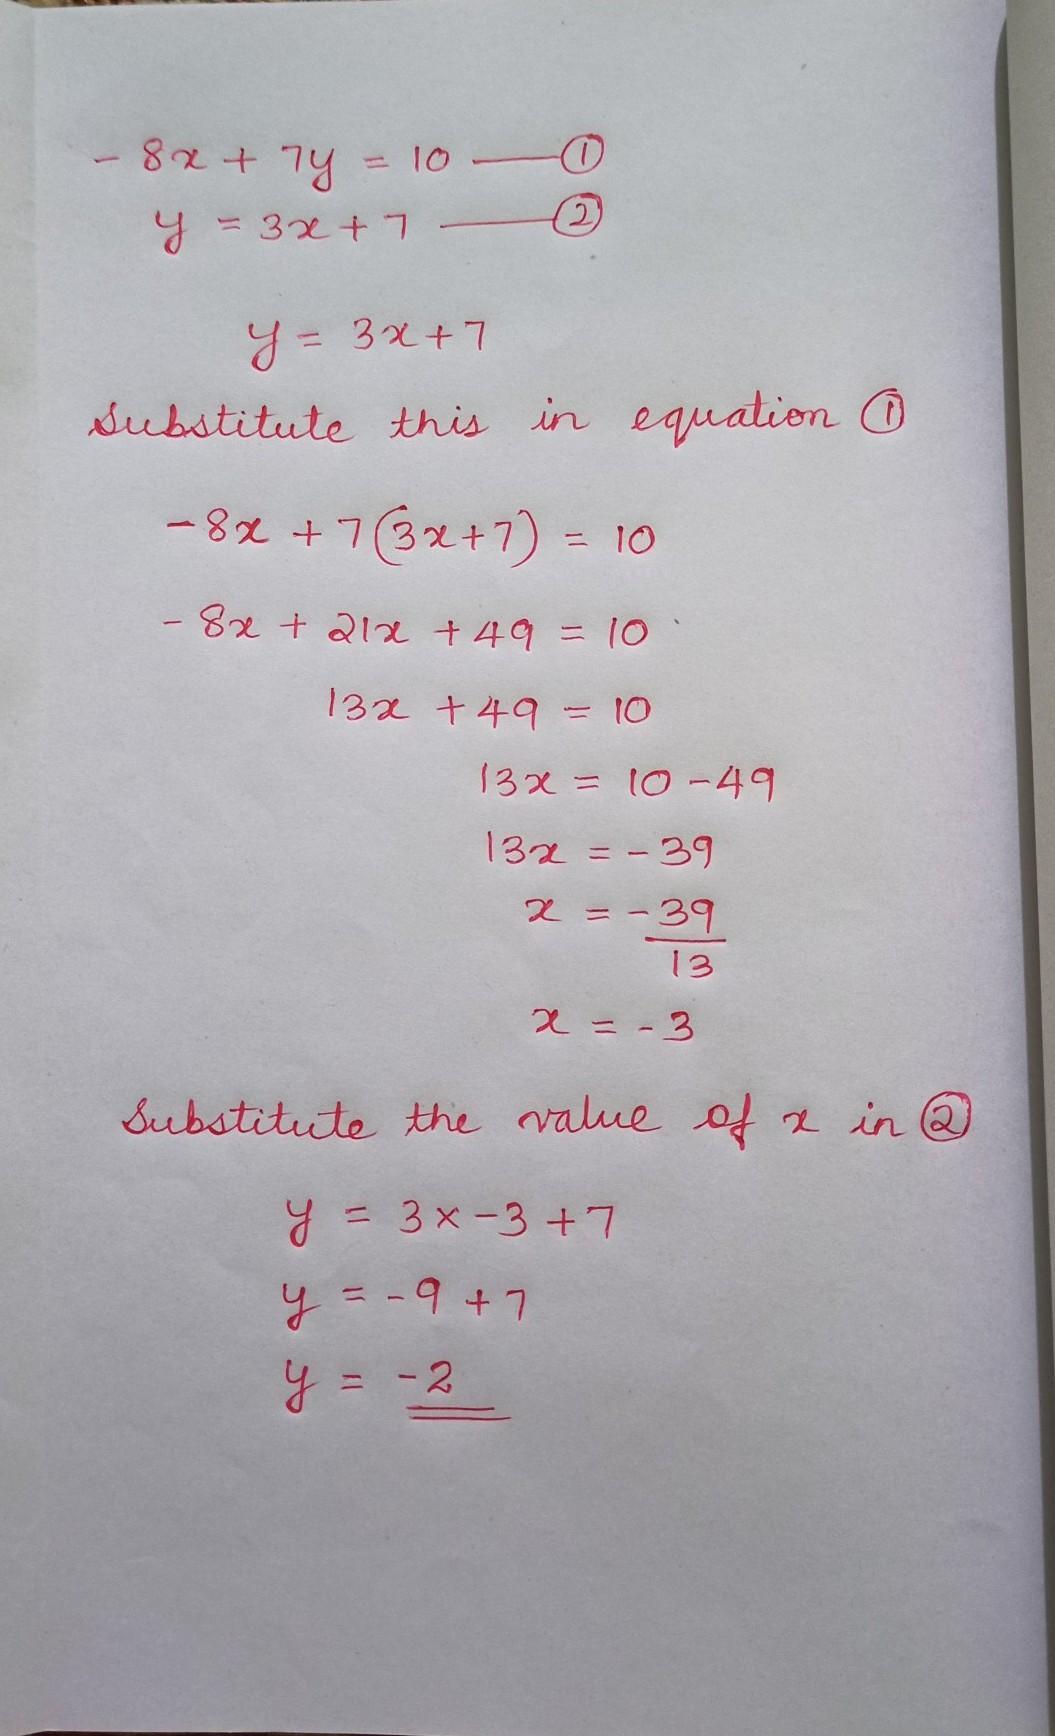 - 8x + 7y = 10 —— ①
y = 3x + 7 —— ②
y = 3x + 7
Substitute this in equation ①
-8x + 7(3x+7) = 10
- 8x + 21x + 49 = 10
13x + 49 = 10
13x = 10 - 49
13x = - 39
x = - 39
13
x = - 3
Substitute the value of x in ②
y = 3 × -3 + 7
y = - 9 + 7
y = - 2